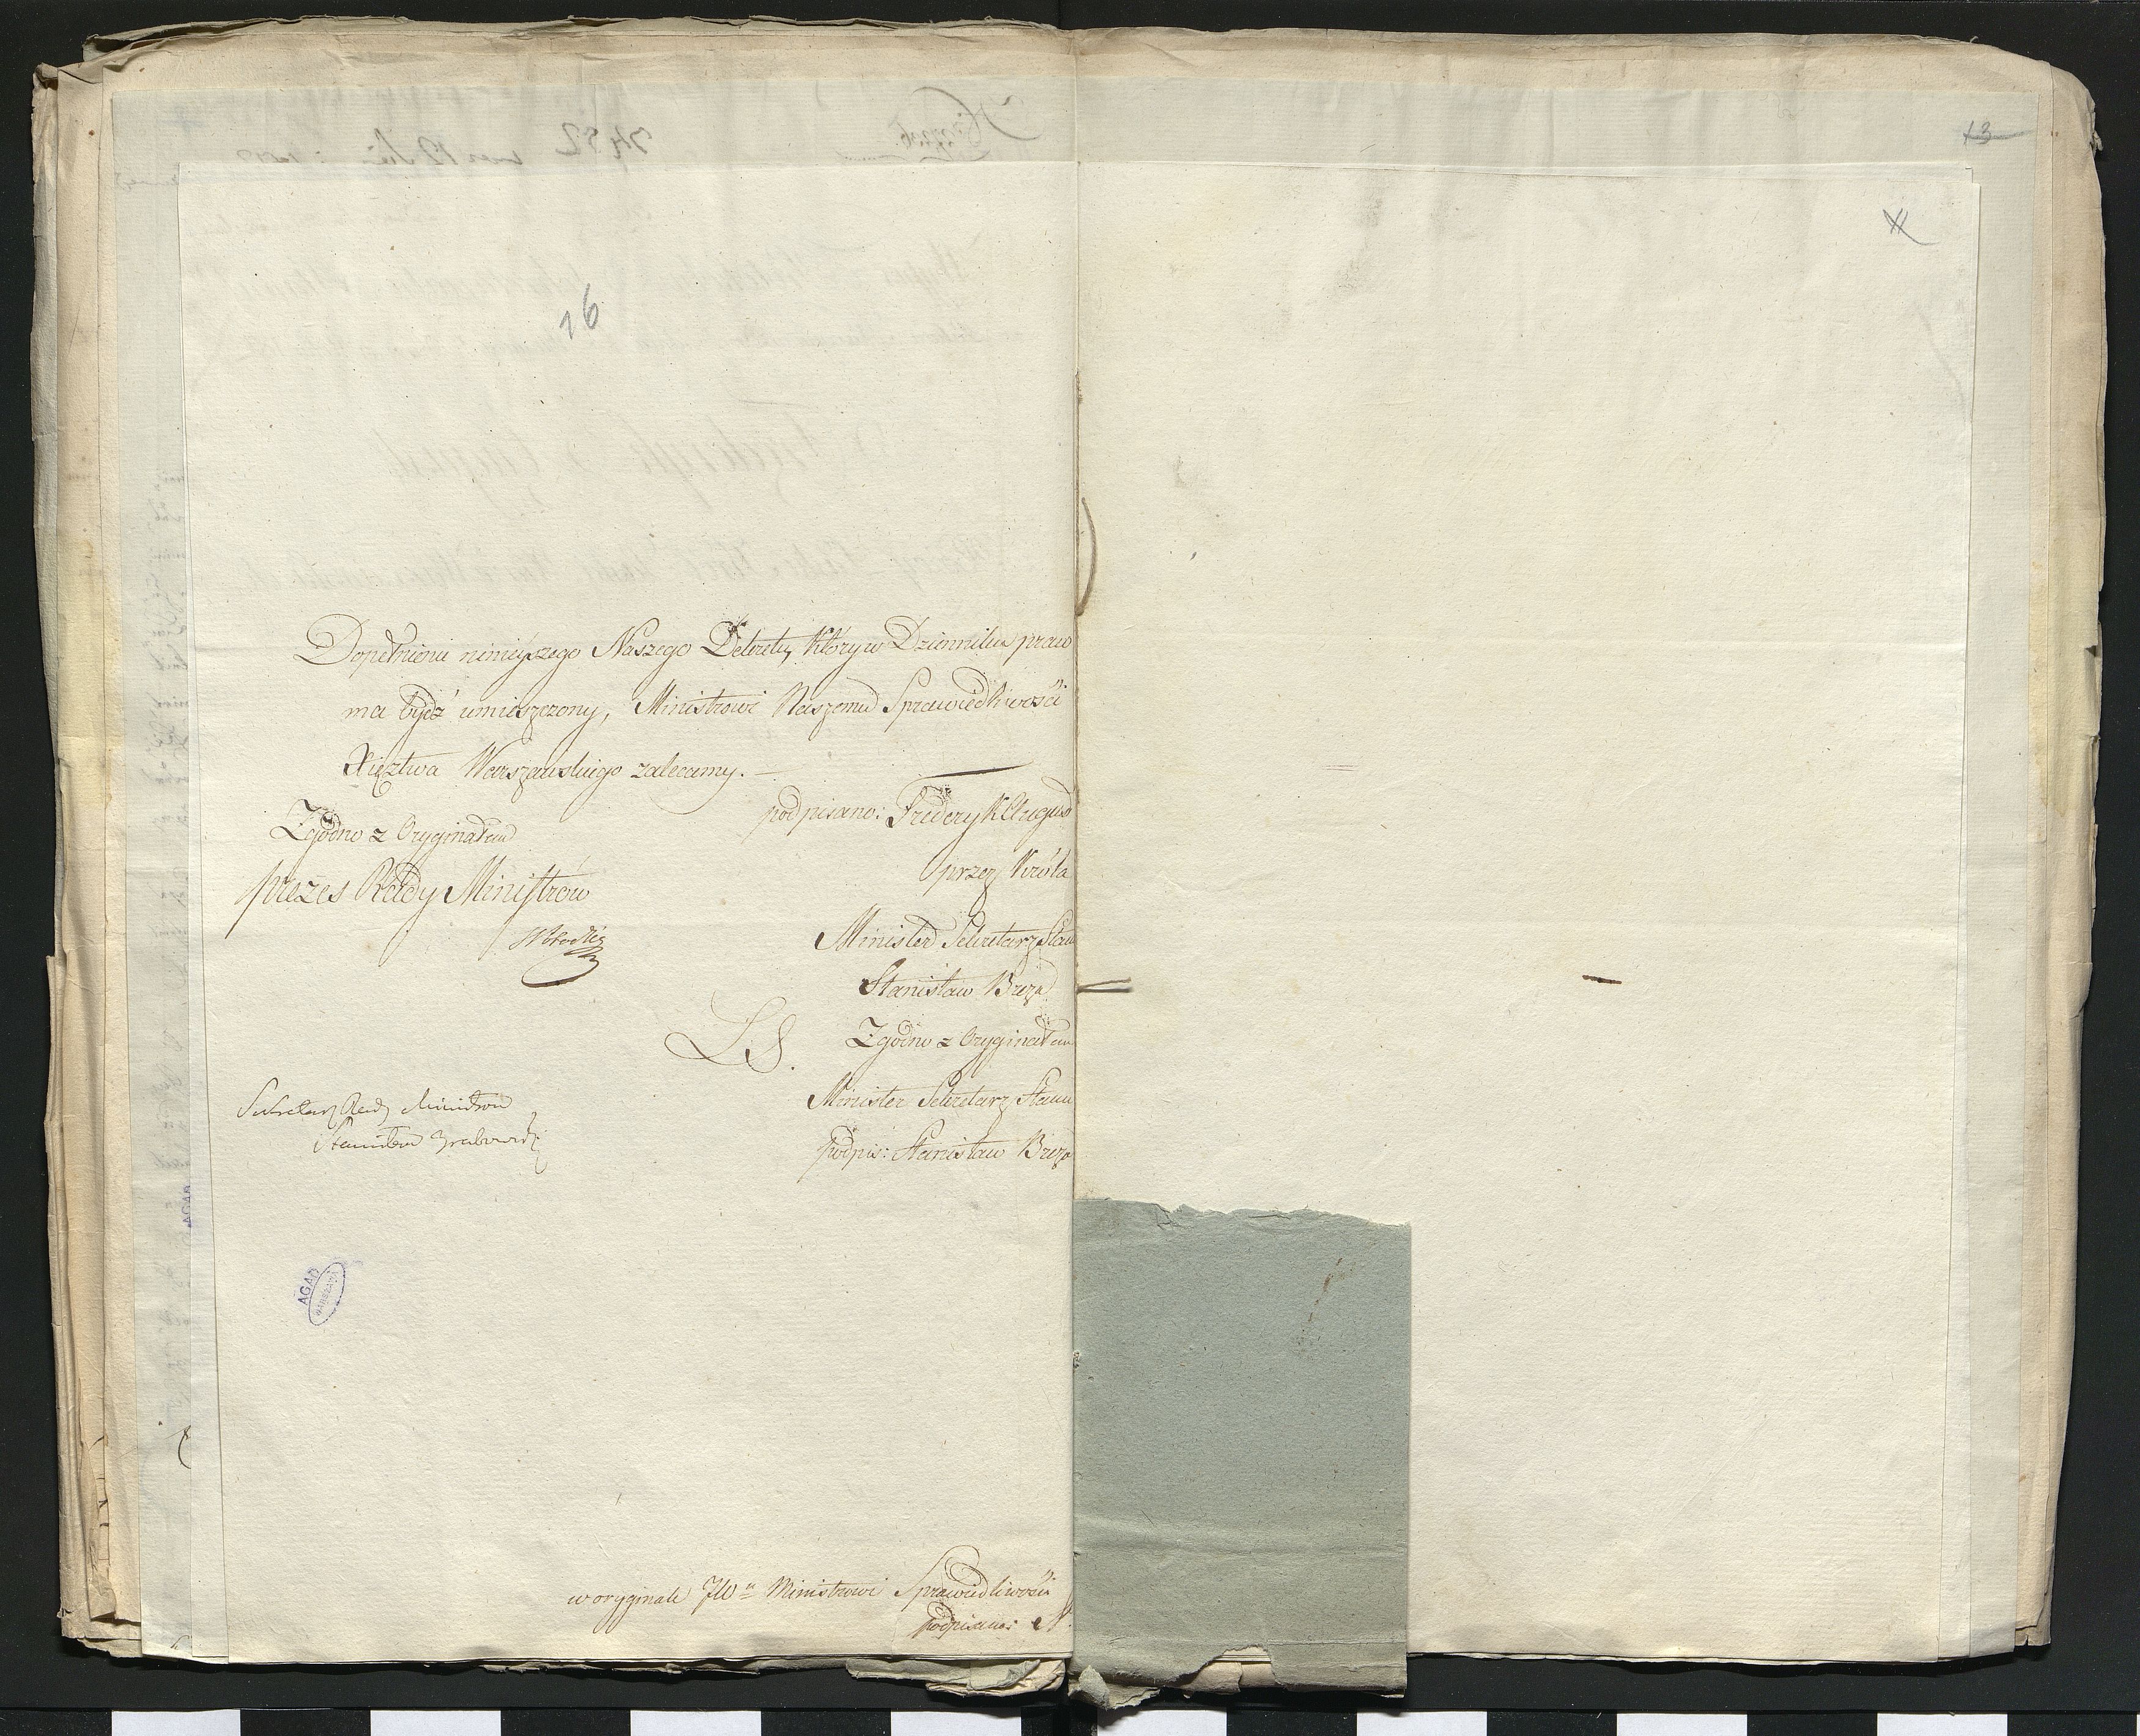 13
16
Dopełnienie ninieyszego Naszego Dekretu, który w Dzienniku praw
ma bydź umieszczony, Ministrowi Naszemu Sprawiedliwości
Xięztwa Warszawskiego zalecamy. —
podpisano: Fryderyk August
Zgodno z Oryginałem
przez Króla
prezes Rady Ministrów
Minister Sekretarz Stanu
Stanisław Breza
L.S.
Zgodno z Oryginałem
Minister Sekretarz Stanu
podpis: Stanisław Breza
Sekretarz Rady Ministrow
Stanisław Grabowski
AGAD
WARSZAWA
w oryginale JWu Ministrowi Sprawiedliwości
podpisano